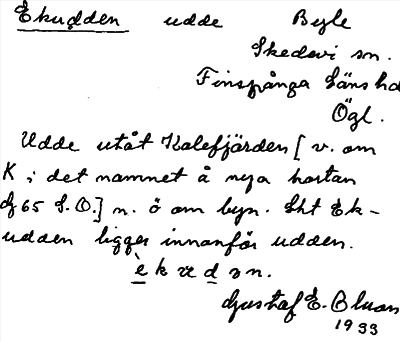 Ekudden udde Bysle
Skedevi sn.
Finspånga läns hd
Ögl.
Udde utåt Kalefjärden [v. om
K, i det namnet å nya kartan
dj 65 S.O.] n. ö om byn. Lht Ek-
udden ligger innanför udden.
Gustaf E. Bluan
1933